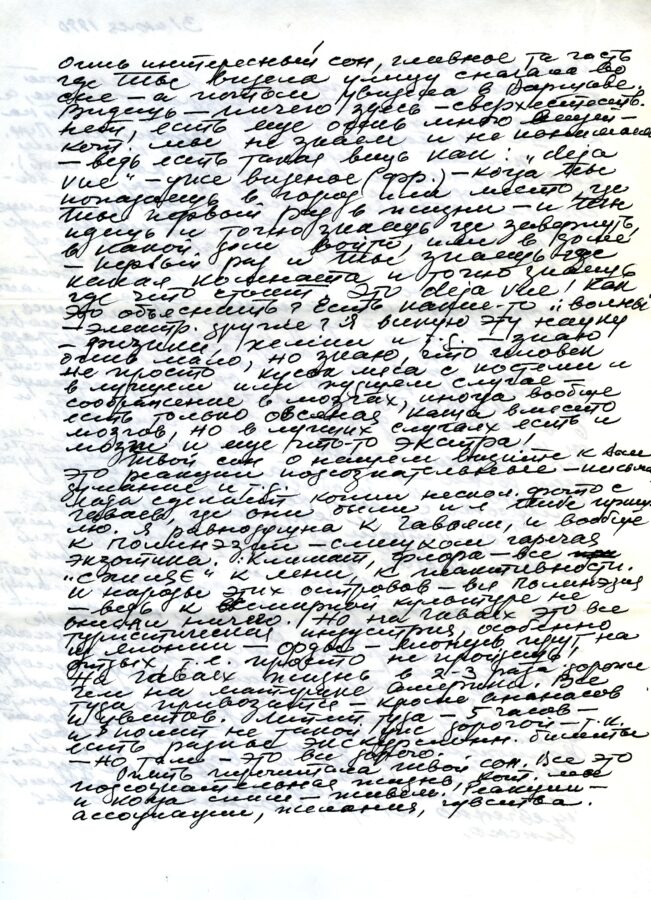 очень интересный сон, главное та часть
где ты видела улицу сначала во
сне — а потом увидела в Варшаве.
Видишь — ничего здесь — сверхестеств.
нет, есть еще очень много вещей —
кот. мы не знаем и не понимаем
— ведь есть такая вещь как: "deja
vue" — уже виденое (фр.) — когда ты
попадаешь в город или место где
ты первый раз в жизни — и ты
идешь и точно знаешь где завернуть,
в какой дом войти, или в доме
— первый раз и ты знаешь где
какая комната и точно знаешь
где что стоит. Это deja vue! Как
это объеснить? Есть какие-то "волны"
— электр. другие? Я эту науку
— физики, хемии и т.д. — знаю
очень мало, но знаю, что человек
не просто кусок мяса с костеми и
в лучшем или худшем случае —
соображение в мозгах, иногда вообще
есть только овсяная каша вместо
мозгов, но в лучших случаях есть и
мозги и еще что-то экстра!
Твой сон о нашем визите к Вам
это реакции подсознательные — письма
думание и т.д.
сделает копии нескол. фото с
Гаваев, где они были и я тебе пришлю
лю. Я равнодушна к Гаваям, и вообще
к Полинэзии — слишком гарячая
экзотика. Климат, флора — все
к лени, к неактивности.
И народы этих островов — вся Полинэзия
— ведь к всемирной культуре не
внесли ничего! Но на Гаваях это все
туристическая индустрия, особенно
из Японии — орды — японцы прут на
т.е. просто не продешь!
На Гаваях жизнь в 2-3 раза дороже
чем на материке Америки. Все
туда привозится — кроме ананасов
и цветов. Лететь туда — 5 часов —
и полет не такой уже дорогой — т.к.
есть разные экскурсионн. билеты
— но там — это все дорого.
Опять перечитала твой сон. Все это
подсознательная жизнь, кот. мы
и когда спим — живем. Реакции —
ассоциации, желания, чувства.